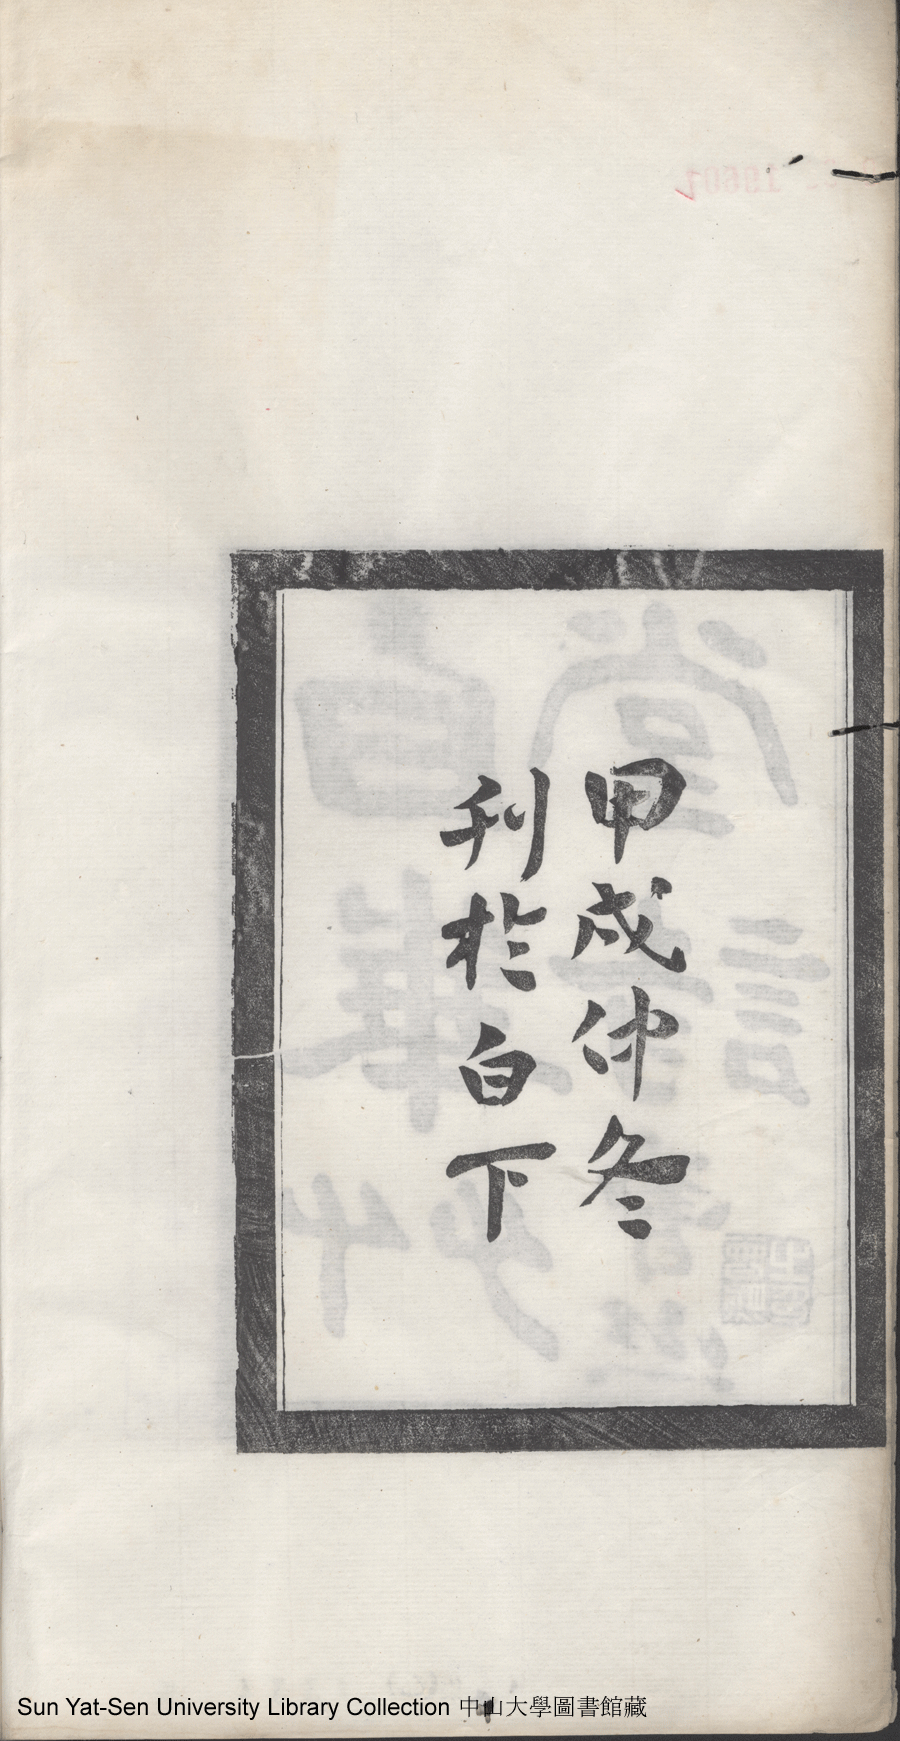 甲戌仲冬
刊於白下
Sun Yat-Sen University Library Collection 中山大學圖書館藏